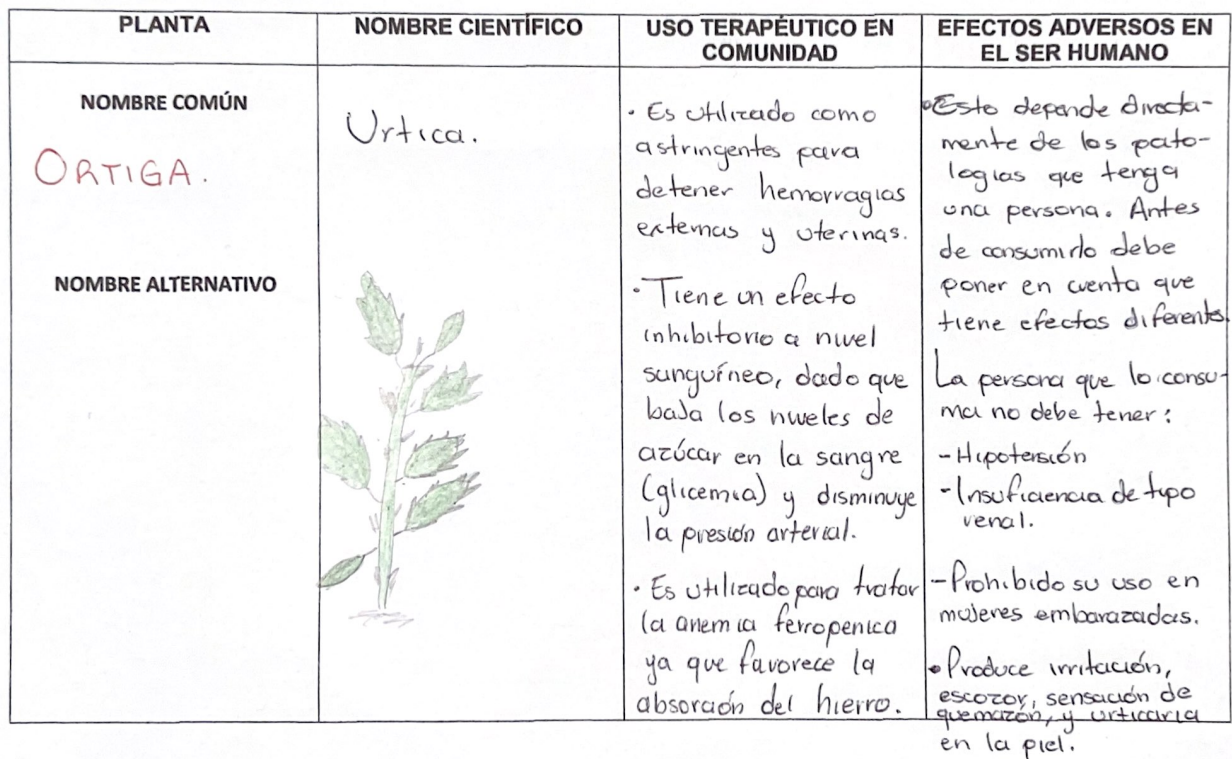 PLANTA
NOMBRE CIENTÍFICO
USO TERAPÉUTICO EN
COMUNIDAD
EFECTOS ADVERSOS EN
EL SER HUMANO
NOMBRE COMÚN
ORTIGA.
NOMBRE ALTERNATIVO
Urtica.
· Es utilizado como
astringentes para
detener hemorragias
externas y uterinas.
· Tiene un efecto
inhibitorio a nivel
sanguíneo, dado que
baja los niveles de
azúcar en la sangre
(glicemia) y disminuye
la presión arterial.
· Es utilizado para tratar
la anemia ferropenica
ya que favorece la
absorción del hierro.
• Esto depende directa-
mente de las pato-
logias que tenga
una persona. Antes
de consumirlo debe
poner en cuenta que
tiene efectos diferentes.
La persona que lo consu-
ma no debe tener:
- Hipotensión
- Insuficiencia de tipo
renal.
- Prohibido su uso en
mujeres embarazadas.
• Produce irritación,
escozor, sensación de
quemazón, y urticaria
en la piel.